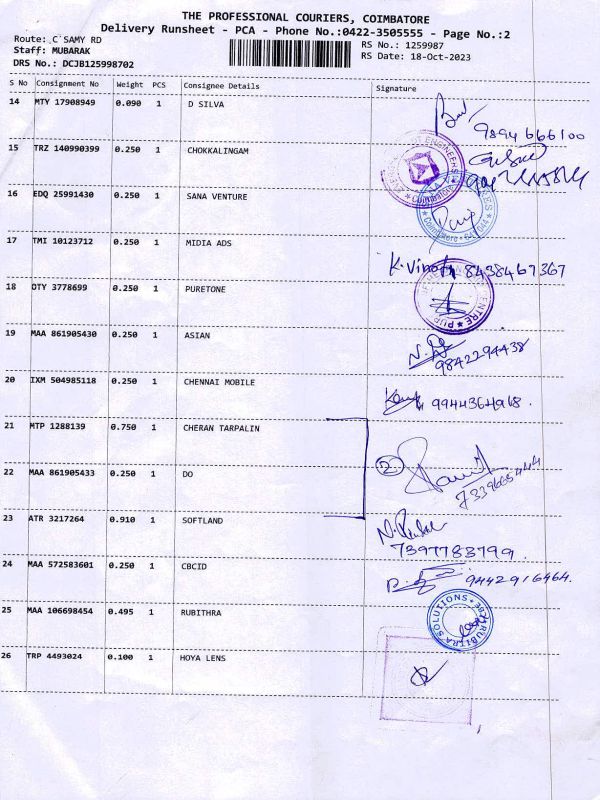 THE PROFESSIONAL COURIERS, COIMBATORE
Delivery Runsheet - PCA - Phone No.:0422-3505555 - Page No.:2
Route: C SAMY RD
Staff: MUBARAK
DRS No.: DCJB125998702
RS No.: 1259987
RS Date: 18-Oct-2023
S No Consignment No Weight PCS Consignee Details Signature
14 MTY 17908949 0.090 1 D SILVA
9894666100
15 TRZ 140990399 0.250 1 CHOKKALINGAM
16 EDQ 25991430 0.250 1 SANA VENTURE
17 TMI 10123712 0.250 1 MIDIA ADS K. Vinoth 8438467367
18 OTY 3778699 0.250 1 PURETONE
19 MAA 861905430 0.250 1 ASIAN
9842294438
20 IXM 504985118 0.250 1 CHENNAI MOBILE 9944364968.
21 MTP 1288139 0.750 1 CHERAN TARPALIN
22 MAA 861905433 0.250 1 DO 2
23 ATR 3217264 0.910 1 SOFTLAND
7397783799.
24 MAA 572583601 0.250 1 CBCID 9442916464.
25 MAA 106698454 0.495 1 RUBITHRA
RUBITRA SOLUTIONS
26 TRP 4493024 0.100 1 HOYA LENS